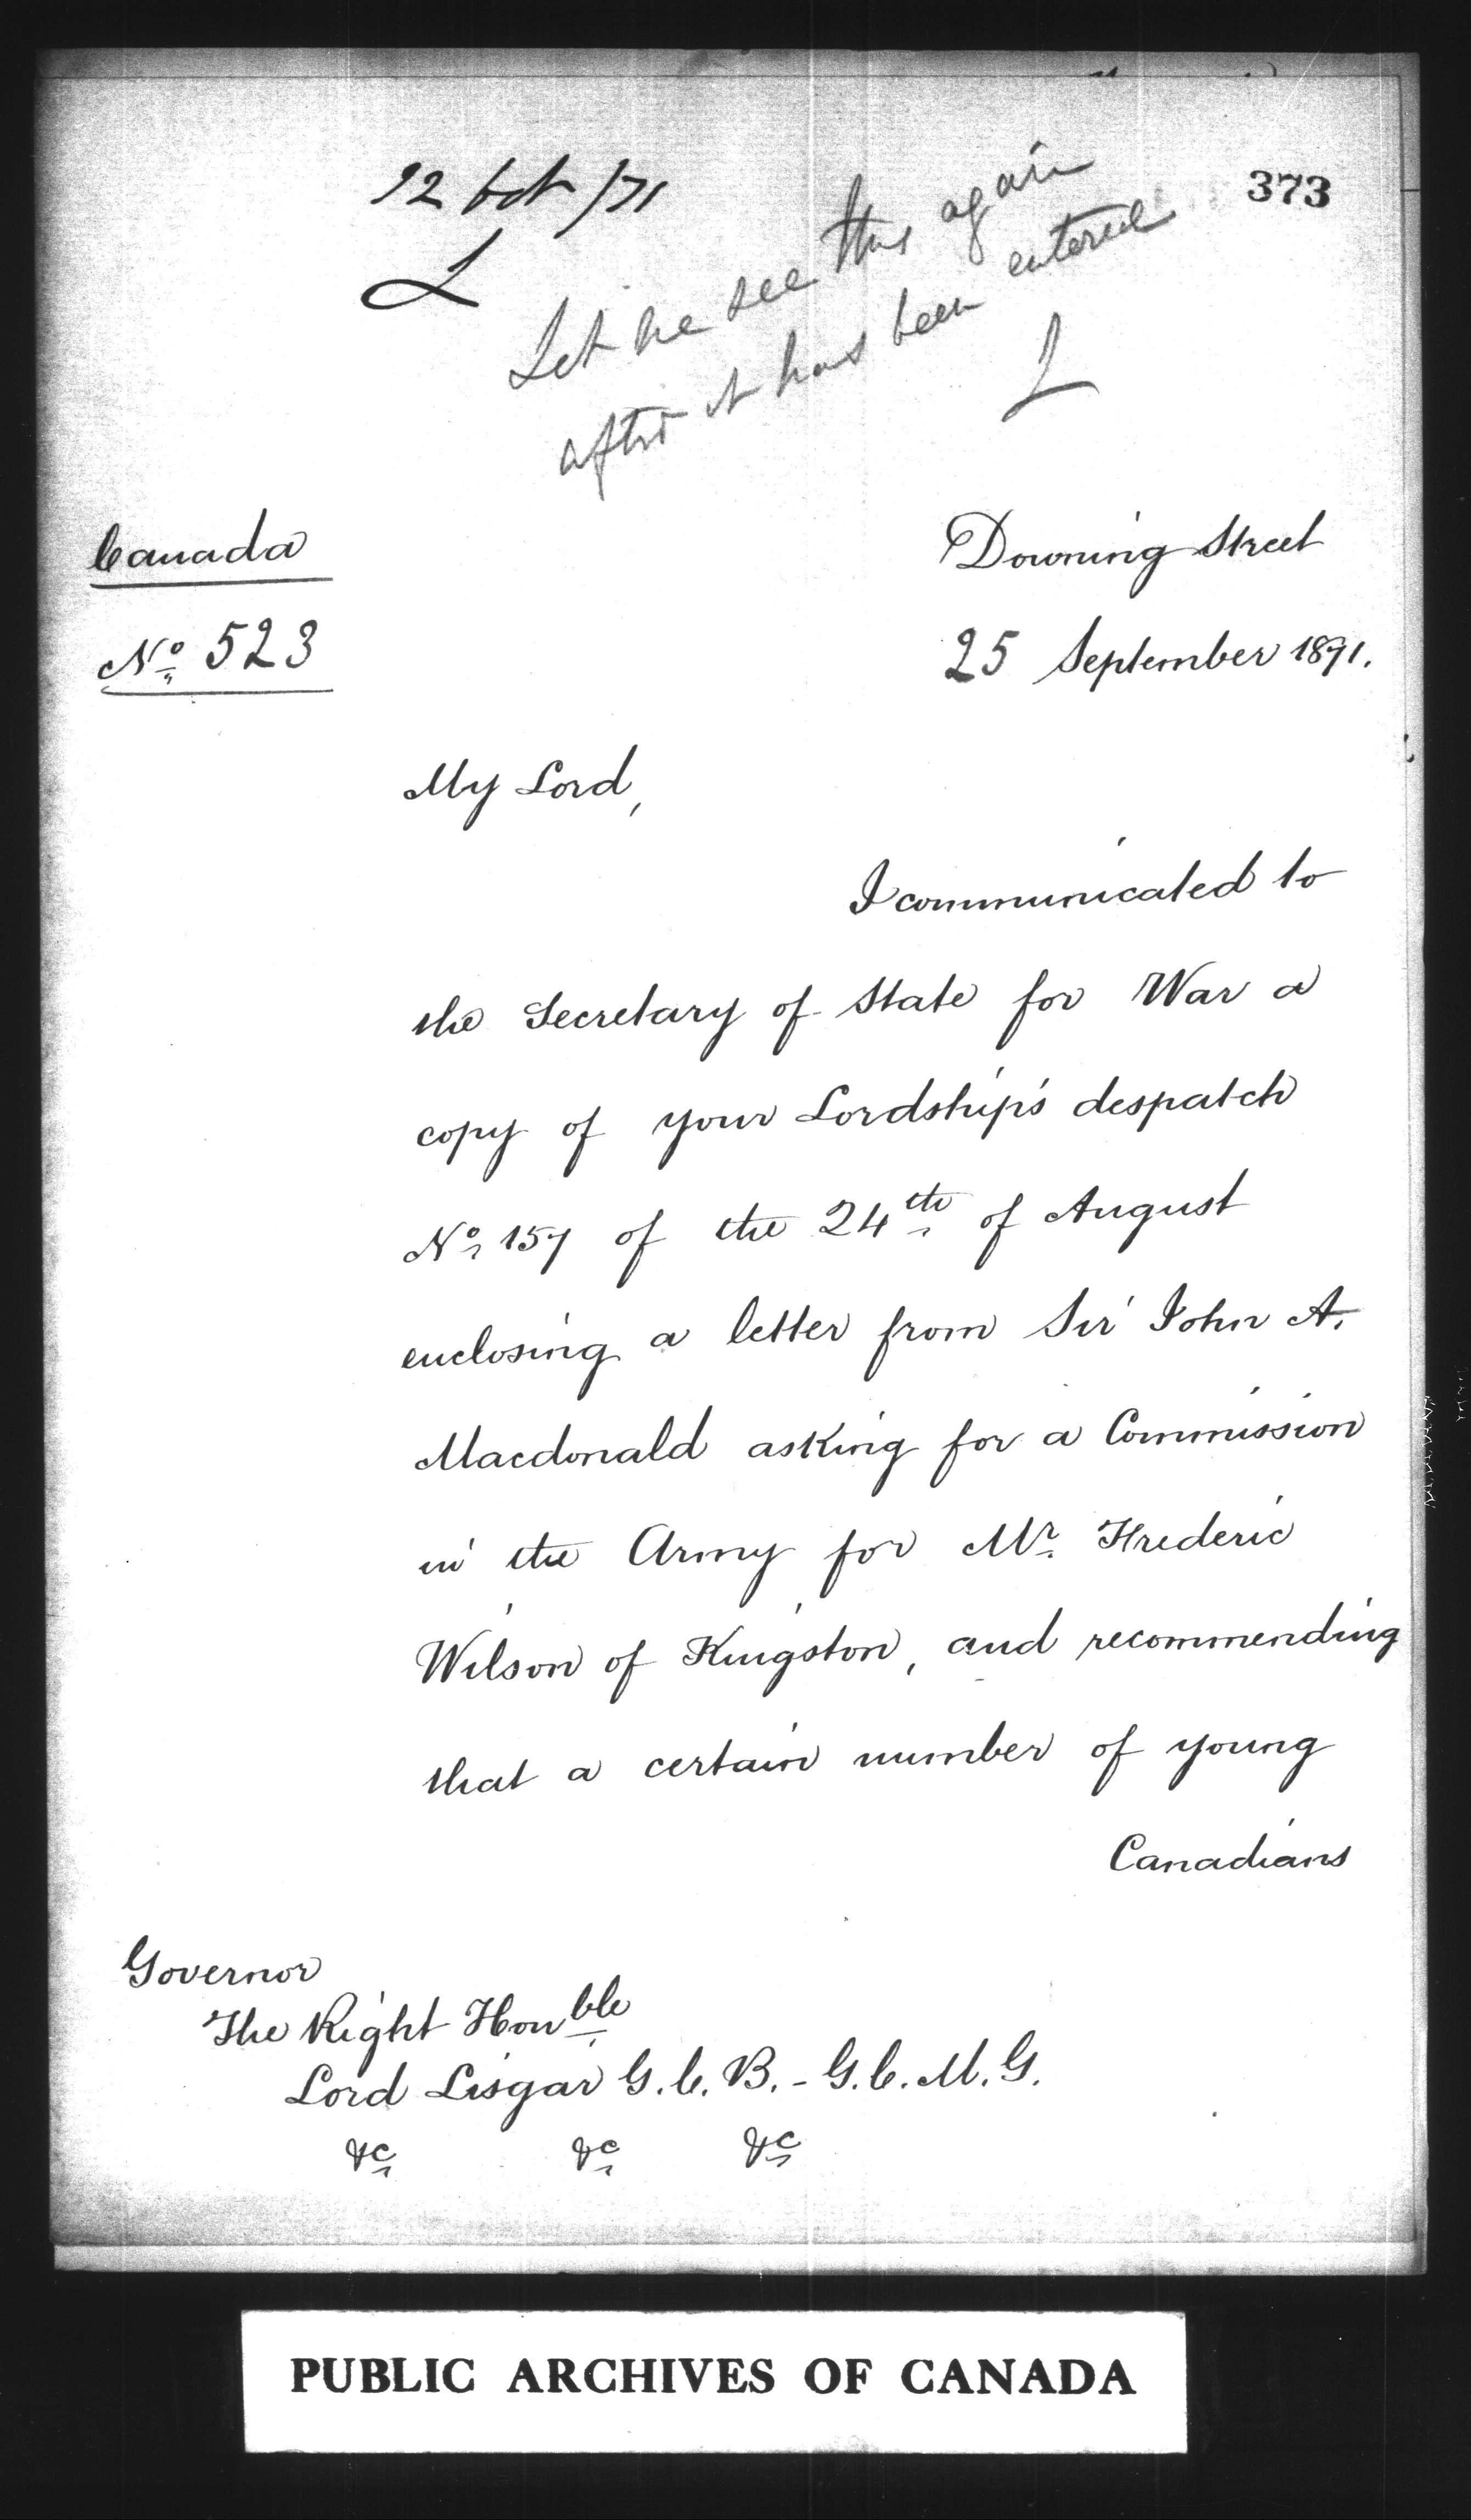 12 Oct /71
373
L
Let me see this again
after it has been entered
L
Canada
Downing Street
No. 523
25 September 1871.
My Lord,
I communicated to
the Secretary of State for War a
copy of your Lordship's despatch
No. 157 of the 24th of August
enclosing a letter from Sir John A.
Macdonald asking for a Commission
in the Army for Mr. Frederic
Wilson of Kingston, and recommending
that a certain number of young
Canadians
Governor
The Right Honble
Lord Lisgar G.C.B. - G.C.M.G.
&c &c &c
PUBLIC ARCHIVES OF CANADA